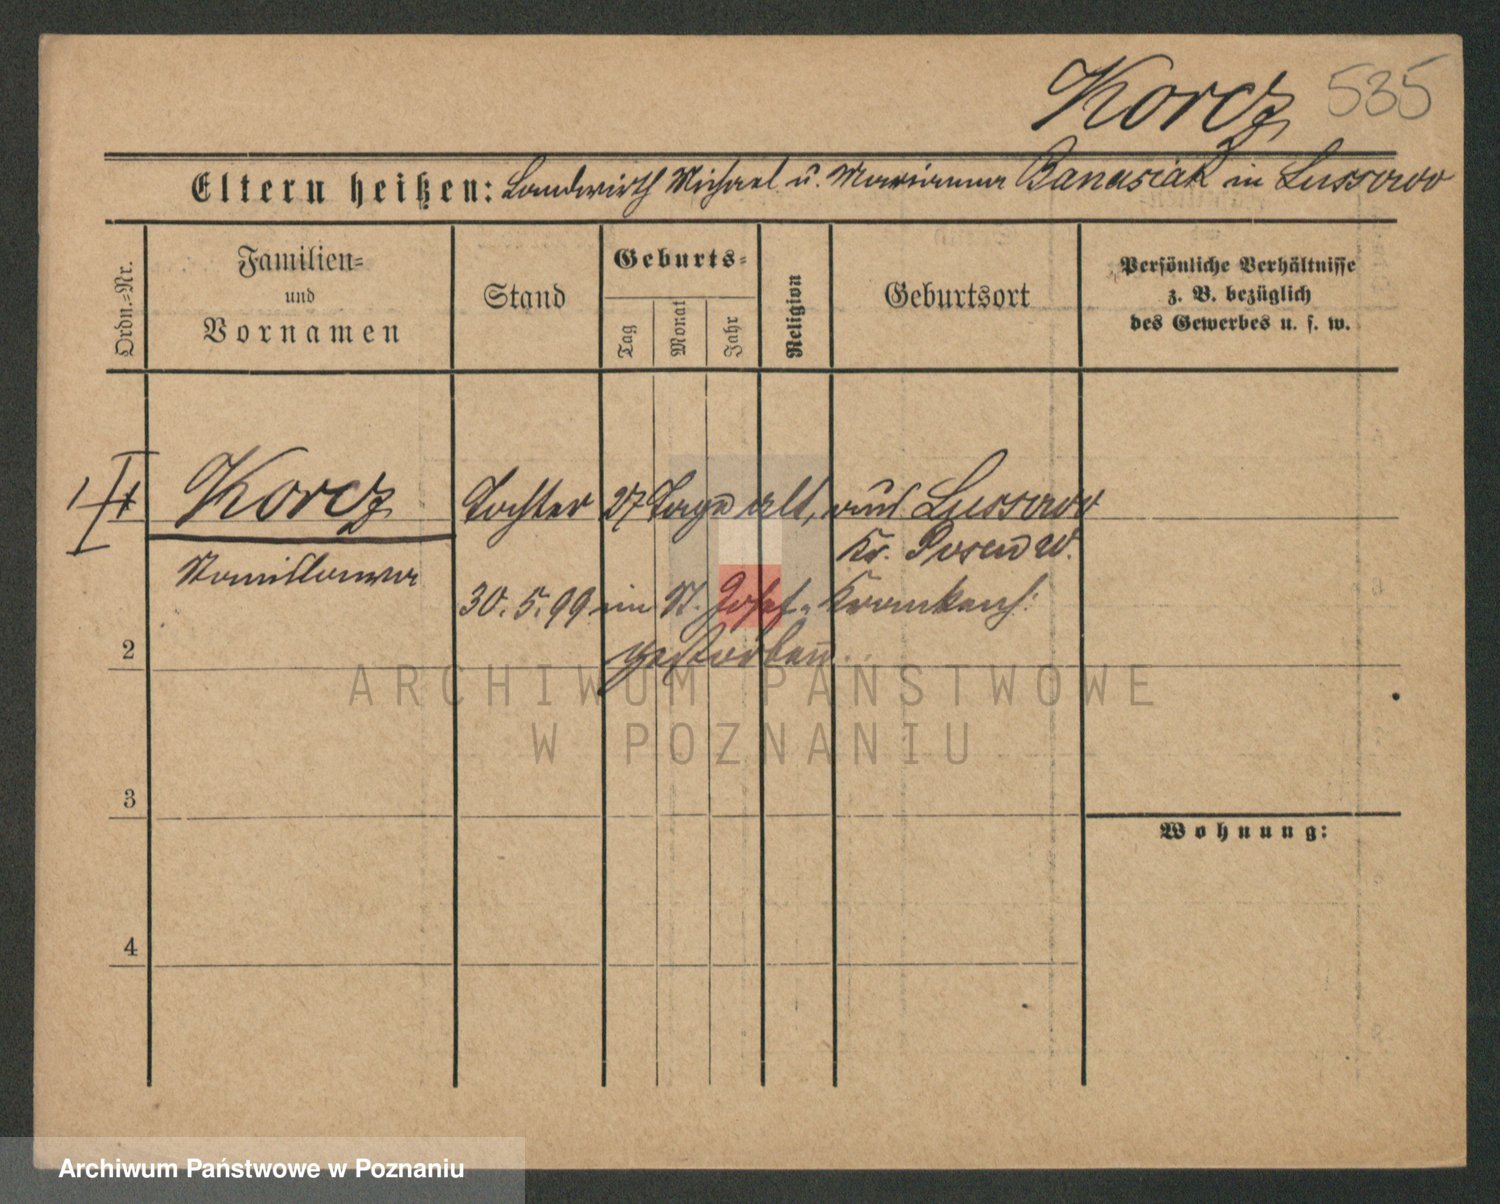 Korcz 535
Eltern heißen: Landwirth Michael u. Marianna Banasiak in Lussowo
Ordn.-Nr.
Familien-
und
Vornamen
Stand
Geburts-
Tag
Monat
Jahr
Religion
Geburtsort
Persönliche Verhältnisse
z. B. bezüglich
des Gewerbes u. s. w.
1 Korcz Tochter 27 Tage alt, aus Lussowo
Kr. Posen W.
Stanislawa
30. 5. 99 im St. Josef-Krankenh:
gestorben.
2
ARCHIWUM PAŃSTWOWE
W POZNANIU
3
Wohnung:
4
Archiwum Państwowe w Poznaniu